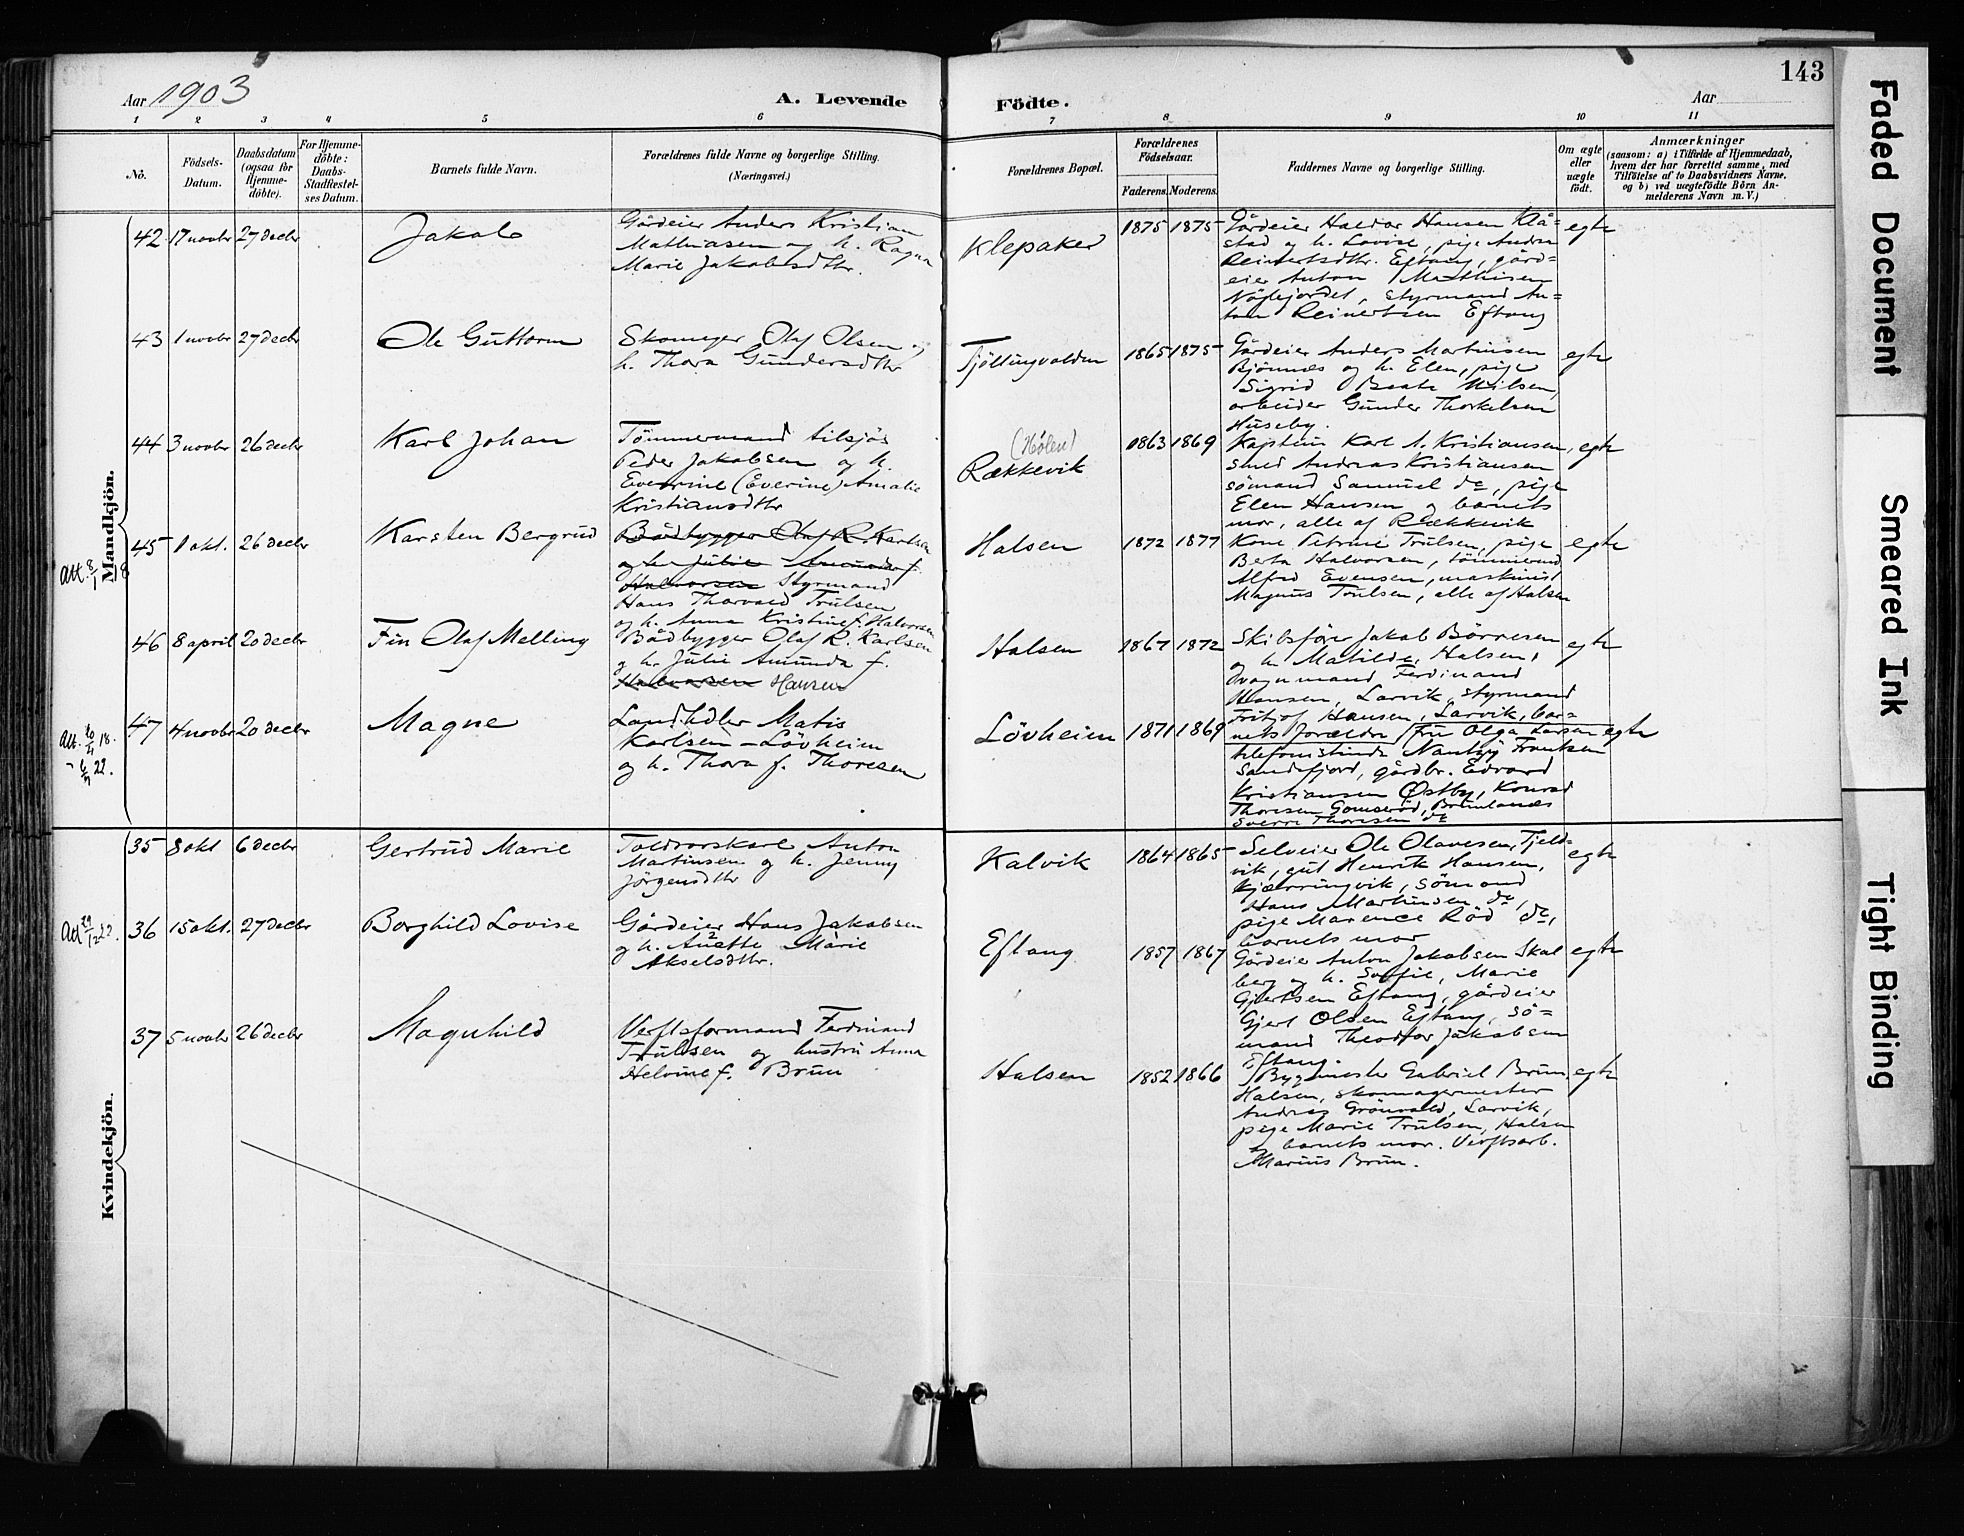 143
Aar 1903
A. Levende Födte.
Aar
1 2 3 4 5 6 7 8 9 10 11
No.
Födsels-Datum.
Daabsdatum (ogsaa for Hjemme-döbte).
For Hjemme-döbte: Daabs-Stadfæstel-ses Datum.
Barnets fulde Navn.
Forældrenes fulde Navne og borgerlige Stilling.
(Næringsvei.)
Forældrenes Bopæl.
Forældrenes Födselsaar.
Faderens. Moderens.
Faddernes Navne og borgerlige Stilling.
Om ægte eller uægte födt.
Anmærkninger
(saasom: a) i Tilfælde af Hjemmedaab,
hvem der har forrettet samme, med
Tilföielse af to Daabsvidners Navne,
og b) ved uægtefödte Börn An-
melderens Navn m. V.)
Mandkjön.
42 17 novbr 27 decbr Jakob
Gårdeier Anders Kristian
Mathiasen og h. Ragna
Marie Jakobsdtr.
Klepaker 1875 1875
Gårdeier Haldor Hansen Klå=
stad og h. Lovise, pige Andrea
Reinertsdtr. Eftang, gård=
eier Anton Mathisen
Nøglejordet, styrmand An=
ton Reinertsen Eftang
egte
43 1 novbr 27 decbr Ole Guttorm
Skomager Olaf Olsen og
h. Thora Gundersdtr
Tjöllingvolden 1865 1875
Gårdeier Anders Martinsen
Bjönnes og h. Elen, pige
Sigrid Beate Nilsen,
arbeider Gunder Thorkelsen
Huseby.
egte
44 3 novbr 26 decbr Karl Johan
Tömmermand tilsjös
Peder Jakobsen og h.
Everine (Everine) Amalie
Kristiansdtr
(Hölen)
Rækkevik 1863 1869
Kaptein Karl A. Kristiansen,
smed Andreas Kristiansen
sömand Samuel do, pige
Elen Hansen og barnets
mor, alle af Rækkevik
egte
Att. 8/1 18
45 1 okt. 26 decbr Karsten Bergrud
Bådbygger Olaf R. Karlsen
og h. Julie Amunda f.
Halvorsen Styrmand
Hans Thorvald Trulsen
og h. Anna Kristine f. Halvorsen
Halsen 1872 1877
Kone Petrine Trulsen, pige
Berta Halvorsen, tömmermd
Alfred Evensen, maskinist
Magnus Trulsen, alle af Halsen
egte
46 8 april 20 decbr Fin Olaf Melling
Bådbygger Olaf R. Karlsen
og h. Julie Amunda f.
Halvorsen Hansen
Halsen 1867 1872
Skibsförer Jakob Börresen
og h. Matilde, Halsen,
vognmand Ferdinand
Hansen, Larvik, styrmand
Fritjof Hansen, Larvik, bar=
nets forældre
egte
47 4 novbr 20 decbr Magne
Landhdler Matis
Karlsen - Lövheim
og h. Thora f. Thoresen
Lövheim 1871 1869
Fru Olga Larsen
telefonistinde Frantzen
Sandefjord, gårdbr. Edvard
Kristiansen Östby, Konrad
Thoresen Gomseröd, Brunlanæs
Sverre Thoresen do
egte
Kvindekjön.
35 8 okt 6 decbr Gertrud Marie
Toldvorskarl Anton
Martinsen og h. Jenny
Jörgensdtr
Kalvik 1864 1865
Selveier Ole Olavesen, Tjeld=
vik, gut Henrik Hansen,
Kjærringvik, sömand
Hans Martinsen do,
pige Marence Röd do,
barnets mor
egte
36 15 okt. 27 decbr Borghild Lovise
Gårdeier Hans Jakobsen
og h. Anette Marie
Akselsdtr.
Eftang 1857 1867
Gårdeier Anton Jakobsen Skal
berg og h. Soffie, Marie
Gjertsen Eftang, gårdeier
Gjert Olsen Eftang, sö=
mand Theodor Jakobsen
Eftang.
egte
37 5 novbr 26 decbr Magnhild
Verftsformand Ferdinand
Trulsen og hustru Anna
Helvine f. Brun
Halsen 1852 1866
Bygmester Gabriel Brun,
Halsen, skomagermester
Andreas Grönvold, Larvik,
pige Marie Trulsen, Halsen
og barnets mor. Verftsarb.
Marius Brun.
egte
Faded Document
Smeared Ink
Tight Binding